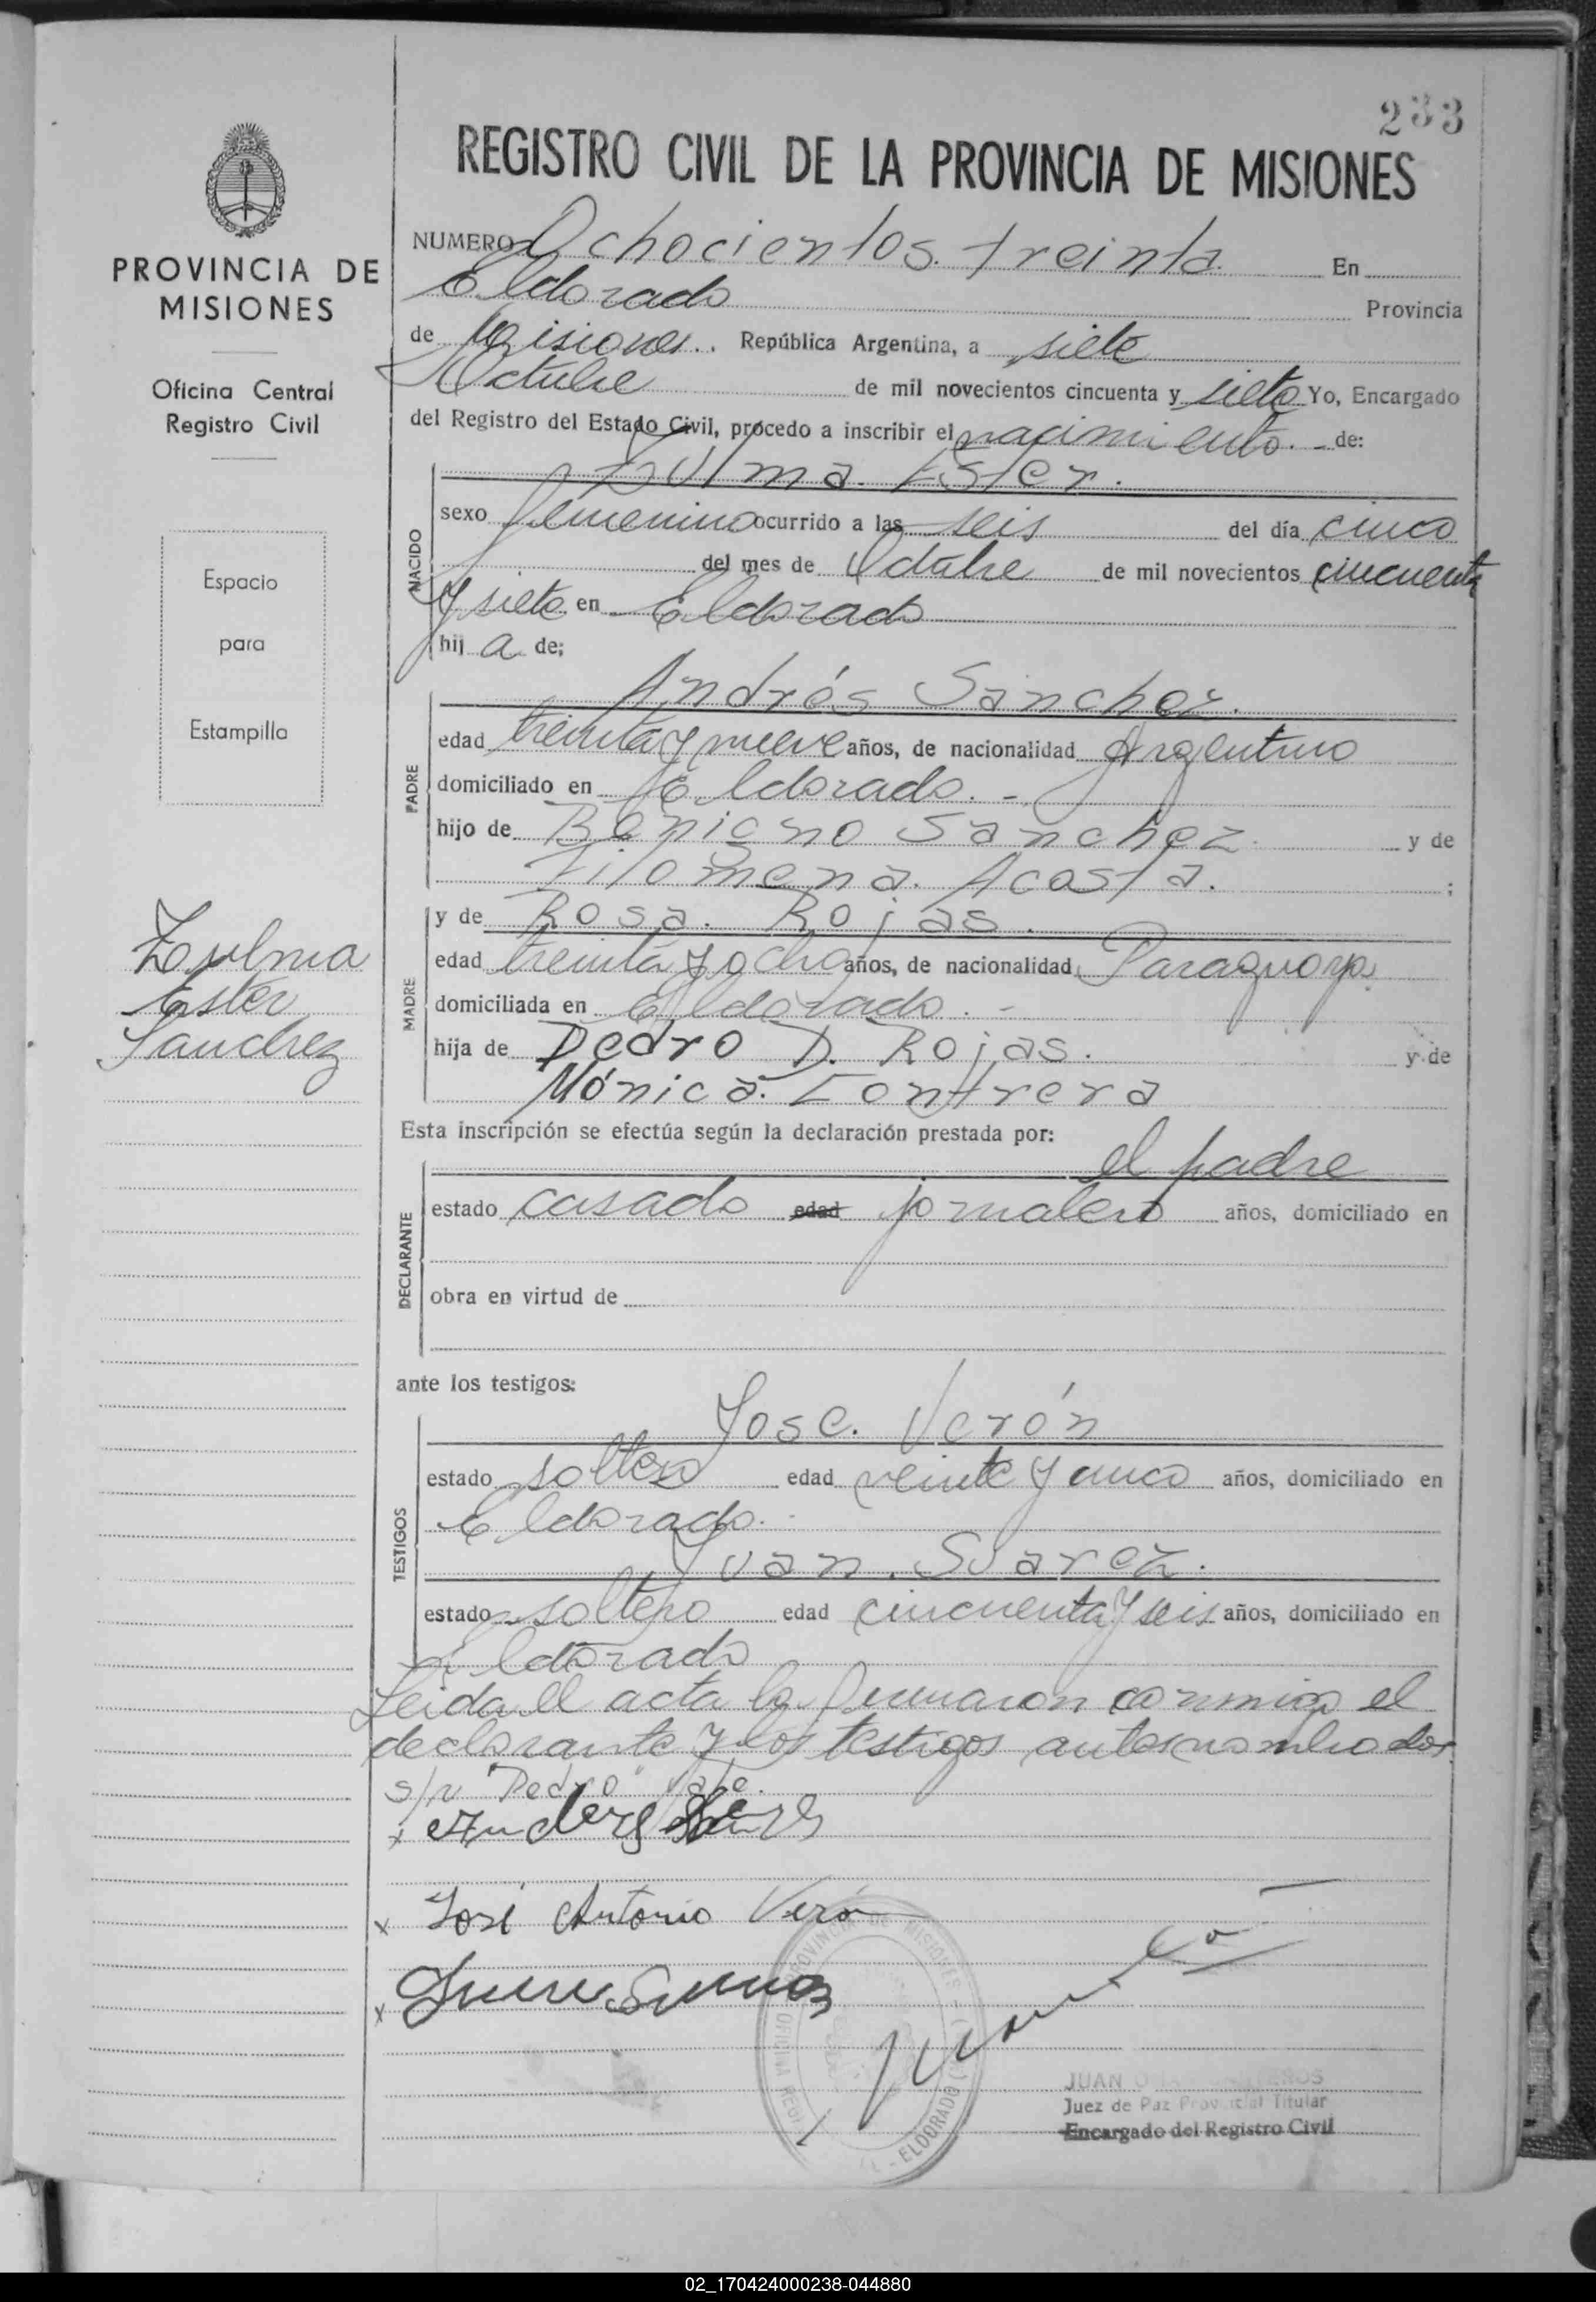 233
REGISTRO CIVIL DE LA PROVINCIA DE MISIONES
PROVINCIA DE
MISIONES
Oficina Central
Registro Civil
Espacio
para
Estampilla
Zulma
Ester
Sanchez
NUMERO Ochocientos treinta. En
Eldorado Provincia
de Misiones. República Argentina, a siete
Octubre de mil novecientos cincuenta y siete Yo, Encargado
del Registro del Estado Civil, procedo a inscribir el nacimiento. - de:
Zulma. Ester.
NACIDO
sexo femenino ocurrido a las seis del día cinco
del mes de Octubre de mil novecientos cincuenta
y siete en Eldorado
hij a de;
PADRE
Andrés Sanchez.
edad treinta y nueve años, de nacionalidad Argentino
domiciliado en Eldorado. -
hijo de Sanchez y de
Filomena. Acosta. ;
MADRE
y de Rosa. Rojas.
edad treinta y ocho años, de nacionalidad Paraguaya
domiciliada en Eldorado. -
hija de Pedro D. Rojas. y de
Mónica. Contrera
Esta inscripción se efectúa según la declaración prestada por:
DECLARANTE
el padre
estado casado edad jornalero años, domiciliado en
obra en virtud de
ante los testigos:
TESTIGOS
Jose. Verón
estado soltero edad veinte y cinco años, domiciliado en
Eldorado.
Juan. Suarez.
estado soltero edad cincuenta y seis años, domiciliado en
Eldorado
Leida el acta la firmaron conmigo el
declarante y los testigos antesnombrados
s/r "Pedro" Vale.
x
x José Antonio Verón
x
PROVINCIA DE MISIONES
ELDORADO
JUAN
Juez de Paz Provincial Titular
Encargado del Registro Civil
02_170424000238-044880